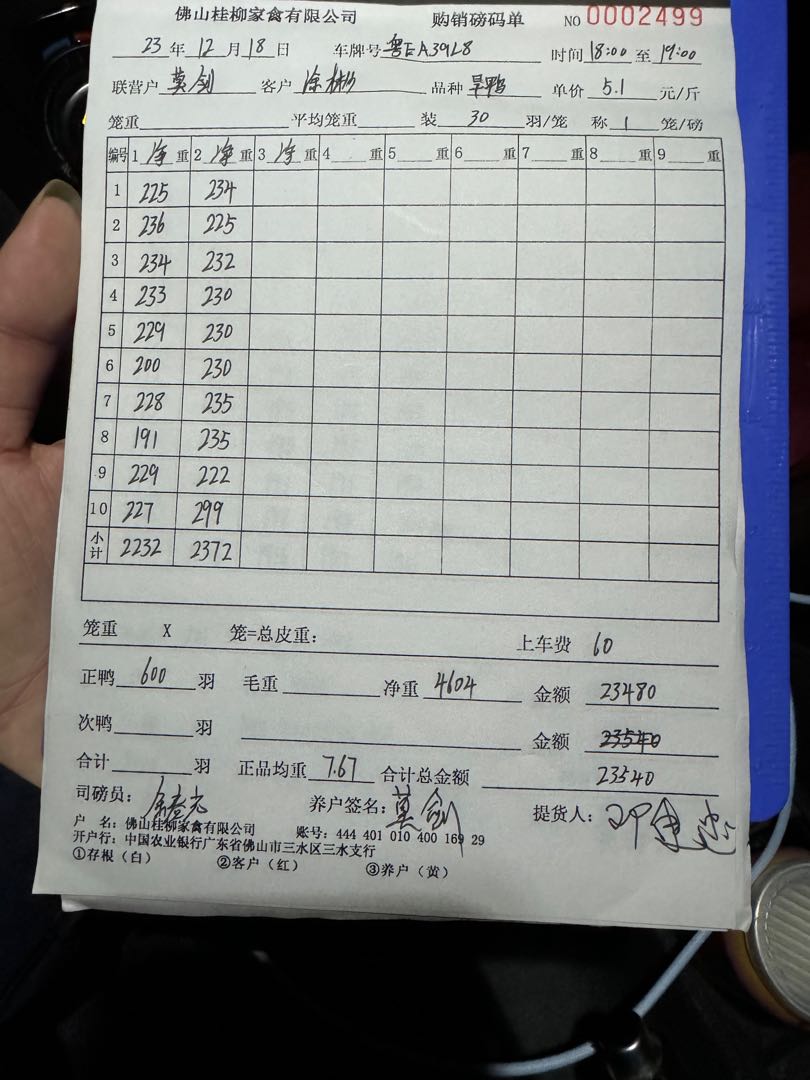 佛山桂柳家禽有限公司 购销磅码单 NO 0002499
23年12月18日 车牌号粤EA39L8 时间18:00至19:00
联营户莫剑 客户涂彬 品种旱鸭 单价5.1元/斤
笼重 平均笼重 装30羽/笼 称1笼/磅
编号 1净重 2净重 3净重 4重 5重 6重 7重 8重 9重
1 225 234
2 236 225
3 234 232
4 233 230
5 229 230
6 200 230
7 228 235
8 191 235
9 229 222
10 227 299
小计 2232 2372
笼重 X 笼=总皮重： 上车费 60
正鸭600羽 毛重 净重4604 金额 23480
次鸭羽 金额 23540
合计羽 正品均重7.67 合计总金额 23540
司磅员： 养户签名：莫剑 提货人：
户 名：佛山桂柳家禽有限公司 账号：444 401 010 400 169 29
开户行：中国农业银行广东省佛山市三水区三水支行
①存根（白） ②客户（红） ③养户（黄）